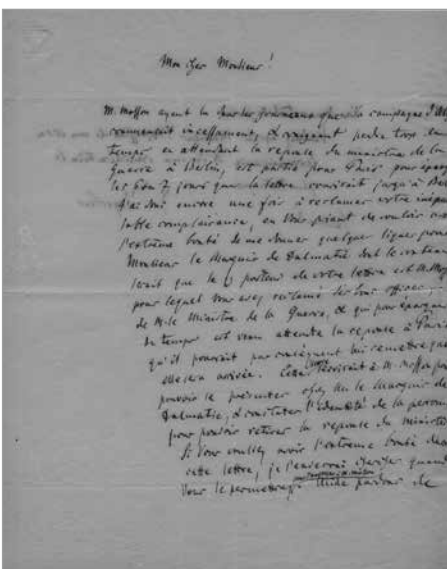 Mon cher Monsieur!
M. Mosson ayant lu sur les journaux que la campagne d'Al
commençait incessamment, & craignant perdre trop de
temps en attendant la reponse du ministre de la
Guerre à Berlin, est partie pour Paris pour éparg
les 6 ou 7 jours que la lettre courrait jusqu'à
J'ai donc encore une fois à reclamer votre inépui
sable complaisance, en Vous priant de vouloir
l'extrême bonté de me donner quelques lignes pour
Monsieur le Marquis de Dalmatie dont le contenu
serait que le porteur de votre lettre est M. Mos
pour lequel Vous avez reclamé les bons offices
de M. le Ministre de la Guerre, & qui pour épargner
du temps est venu attendre la reponse à Paris
qu'il pourrait par conséquent lui remettre que
elle sera arrivée. Cette lettre servirait à M. Mosson pour
pouvoir se présenter chez M. le Marquis de
Dalmatie, & constater l'identité de la person
pour pouvoir retirer la reponse du Ministre
Si Vous vouliez avoir l'extreme bonté de
cette lettre, je l'enverrai chercher quand
Vous le permettrez. Mille pardons de